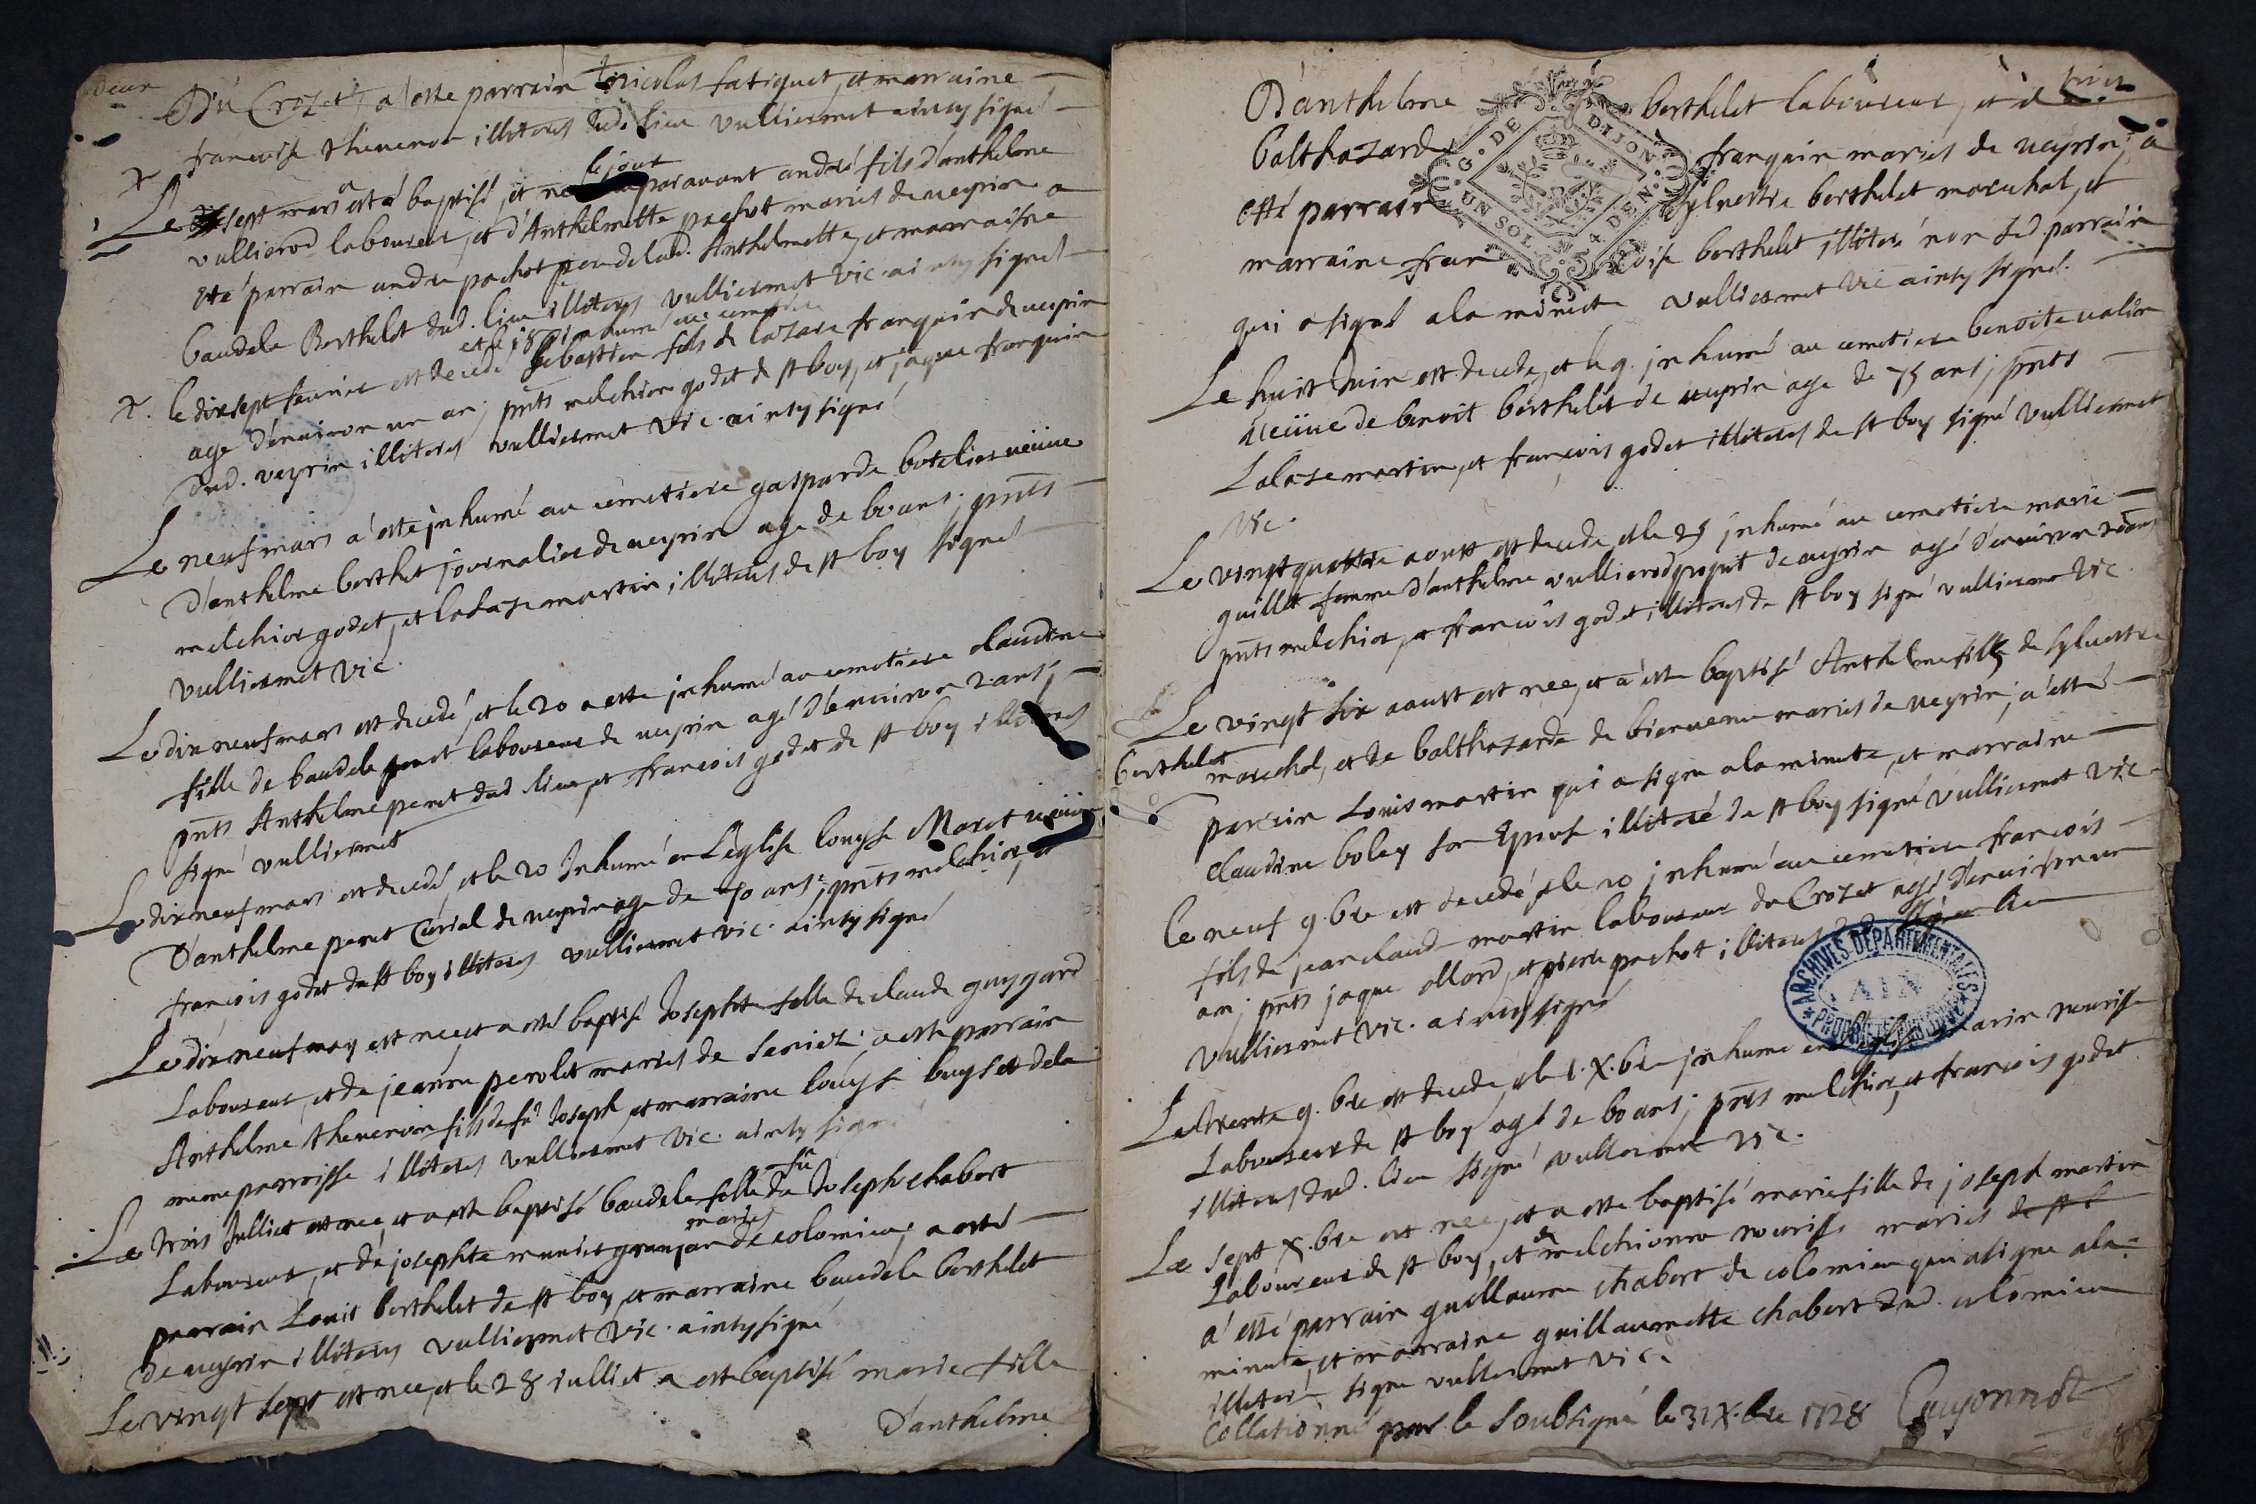 deux
Du Crozet, a esté parrain nicolas fatiguet, et marraine
francoise thevenon illiteres dud. lieu vulliermet ainsy signé
Le sept mars a esté baptisé, et né le jour paravant andré fils d'anthelme
vullierod laboureur, et d'Anthelmette pochot mariés de veyrin a
esté parrain andre pochot de lad. Anthelmette, et marraine
baudele Berthelet dud. lieu illiteres vulliermet vic. ainsy signé
et le 18 inhumé au cemetiere
le dixsept feurier est decedé sebastien fils de lazare franquin de veyrin
age d'enuiron un an; pnts melchior godet de st boy, et jaque franquin
dud. veyrin illiteres vulliermet vic. ainsy signé
Le neuf mars a esté inhumé au cemetiere gasparde botelier veuue
d'anthelme berthet journalier de veyrin age de 60 ans; pnts
melchior godet, et lalaze martin illiteres de st boy signé
vulliermet vic.
Le dix neuf mars est decedé, et le 20 a esté inhumé au cemetiere claudine
fille de baudele peret laboureur de veyrin agé d'enuiron 2 ans;
pnts Anthelme peret dud. lieu, et francois godet de st boy illiteres
signé vulliermet
Le dix neuf mars est decedé, et le 20 Inhumé en L'eglise louyse Maret veuue
d'anthelme peret Curial de veyrin age de 70 ans; pnts melchior, et
francois godet de st boy illiteres vulliermet vic. ainsy signé
Le dix neuf may est nee, et a esté baptisé Josephte fille de claude guygard
Laboureur, et de jeanne perolet mariés de a esté parrain
Anthelme thevenon fils de fû Joseph, et marraine louyse buysset de la
meme parroisse illiteres vulliermet vic. ainsy signé
Le trois Julliet est nee, et a esté baptisé baudele fille de fû Joseph chabert
Laboureur, et de josephte munier granjan mariés de colomieu; a esté
parrain Louis berthelet de st boy, et marraine baudele berthelet
de veyrin illiteres vulliermet vic. ainsy signé
Le vingt sept est nee, et le 28 julliet a esté baptisé marie fille
d'anthelme
D'anthelme berthelet laboureur, et d
balthazarde franquin mariés de veyrin; a
esté parrain sylvestre berthelet marechal, et
marraine francoise berthelet illiteré non led. parrain
qui a signé a la minute vulliermet vic ainsy signé.
G. DE DIJON
UN SOL 4 DEN.
Le huit Juin est decede, et le 9 inhumé au cemetiere benoite valin
veuue de benoit berthelet de veyrin age de 75 ans; pnts
Lalaze martin, et francois godet illiteres de st boy signé vulliermet
vic.
Le vingt quattre aoust est decede, et le 25 inhumé au cemetiere marie
guillot femme d'anthelme vullierod de veyrin agé d'enuiron ans
pnts melchior, et francois godet illiteres de st boy signé vulliermet vic.
Le vingt six aoust est nee, et a esté baptisé Anthelme fille de sylvestre
berthelet marechal, et de balthazarde de bienvenu mariés de veyrin; a esté
parrain Louis martin qui a signe a la minute, et marraine
claudine boley son Epouse illiteré de st boy signé vulliermet vic.
Le neuf 9.bre est decedé et le 10 inhumé au cemetiere francois
fils de jean claude martin laboureur de Crozet agé d'enuiron un
an; pnts jaque allard, et pierre pochot illiteres
vulliermet vic. ainsy signé
ARCHIVES DEPARTEMENTALES
AIN
PROPRIÉTÉ PUBLIQUE
Le trente 9.bre est decede, et le 1.X.bre inhume en L'eglise marin nourisse
Laboureur de st boy agé de 60 ans; pnts melchior, et francois godet
illiteres dud. lieu signé vulliermet vic.
Le sept X.bre est nee, et a esté baptisé marie fille de joseph martin
Laboureur de st boy, et de melchionne nourisse mariés de st b
a esté parrain guillaume chabert de colomieu qui a signe a la
minute, et marraine guillaumette chabert dud. colomieu
illiteré signe vulliermet vic.
Collationné par le soubsigné le 31 X.bre 1728 Guyonnet